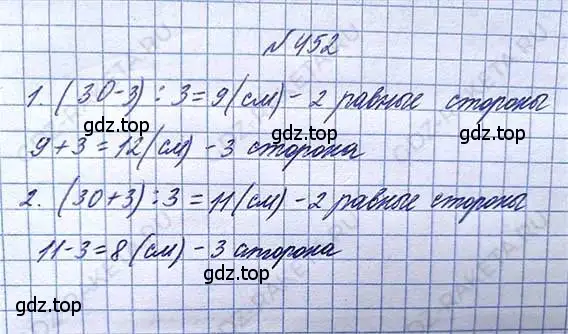 №452
1. (30-3) : 3 = 9 (см) - 2 равные стороны
9 + 3 = 12 (см) - 3 сторона
2. (30+3) : 3 = 11 (см) - 2 равные стороны
11-3 = 8 (см) - 3 сторона
gdz.top gdz.top
gdz.top gdz.top
gdz.top gdz.top